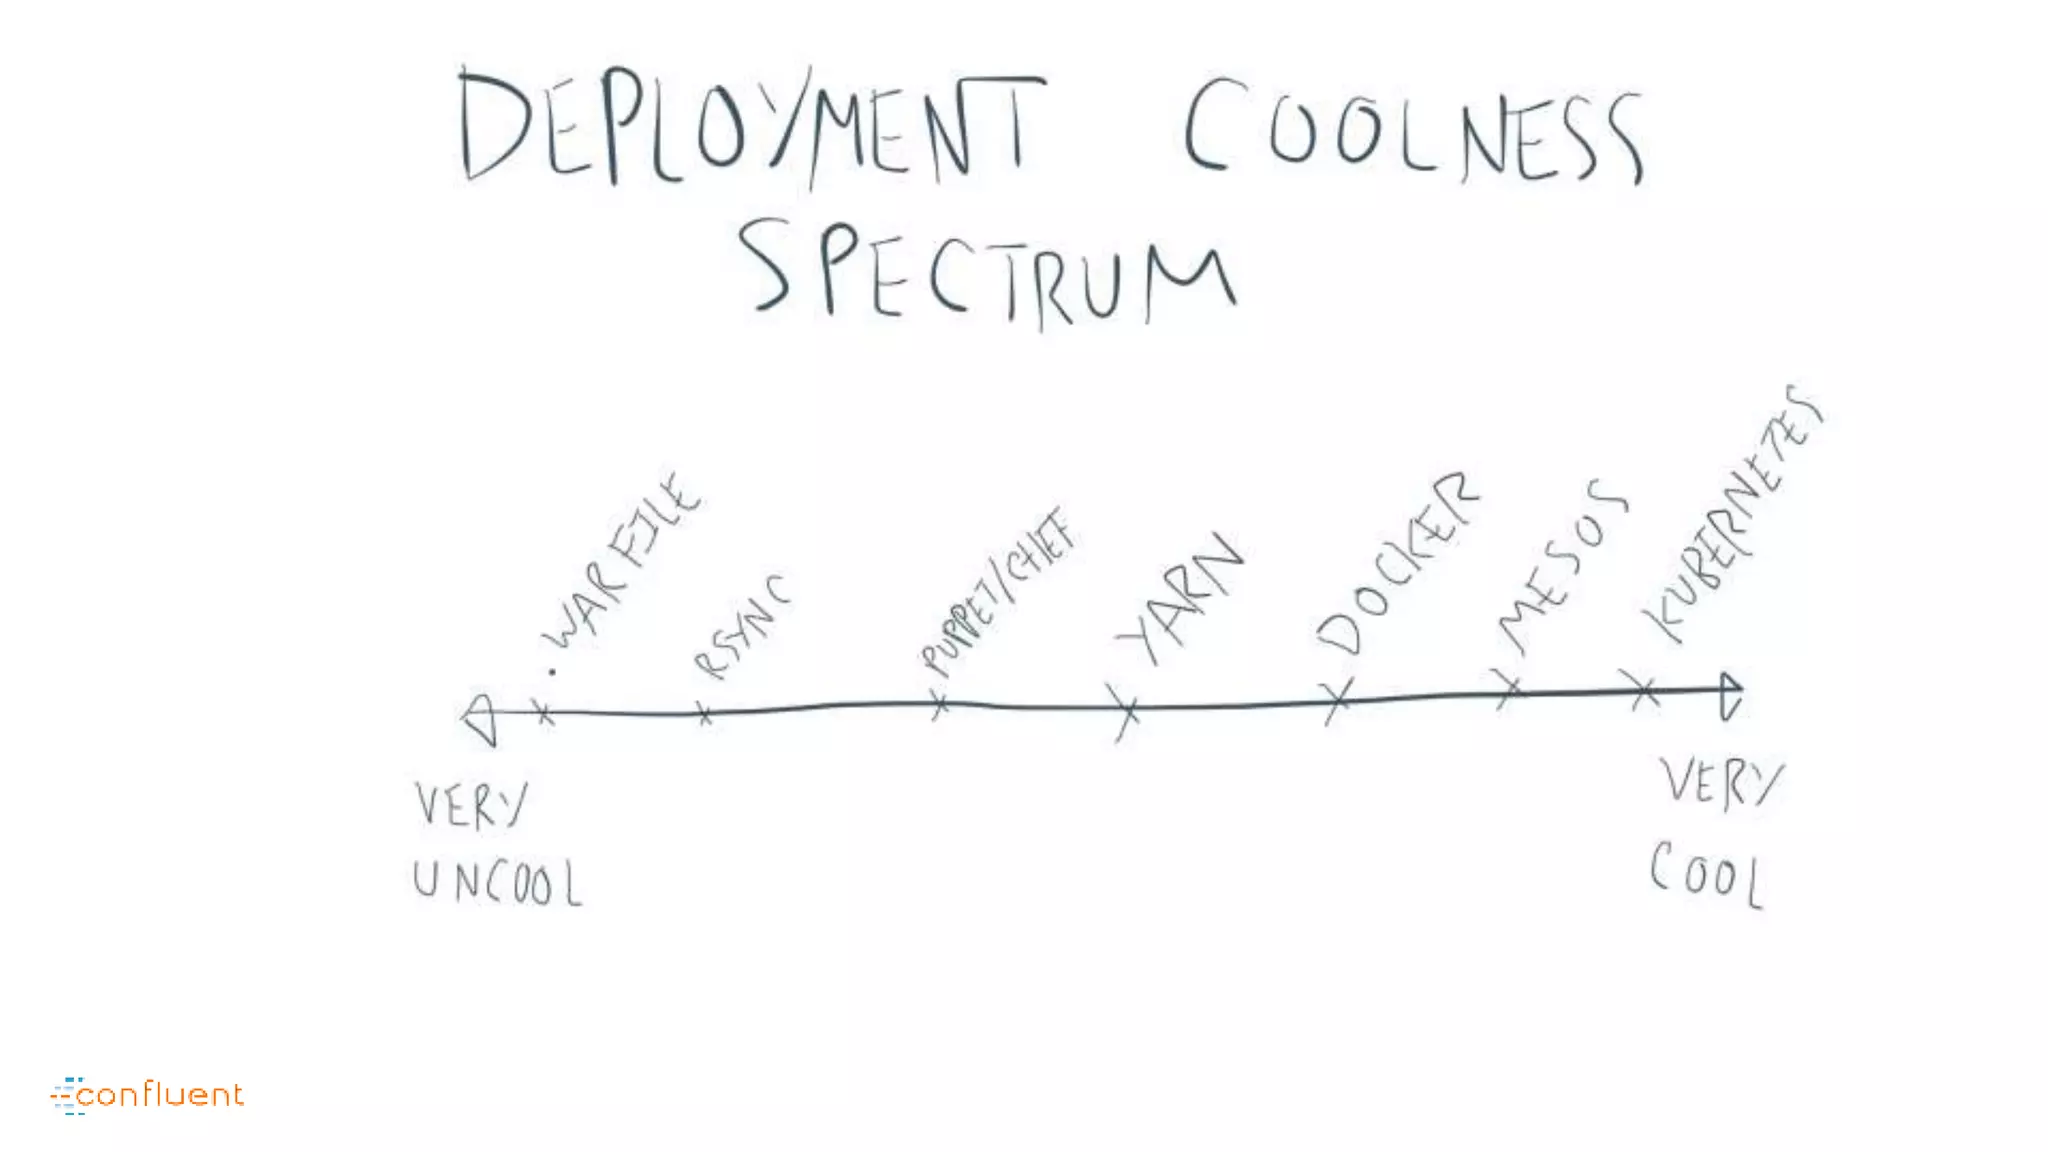 DEPLOYMENT COOLNESS
SPECTRUM
.WAR FILE
RSYNC
PUPPET/CHEF
YARN
DOCKER
MESOS
KUBERNETES
VERY
UNCOOL
VERY
COOL
confluent